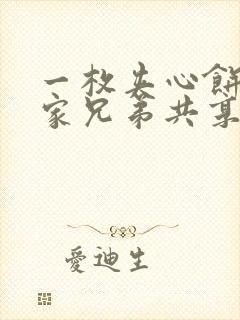 一枚夹心餅
家兄弟共某
愛迪生